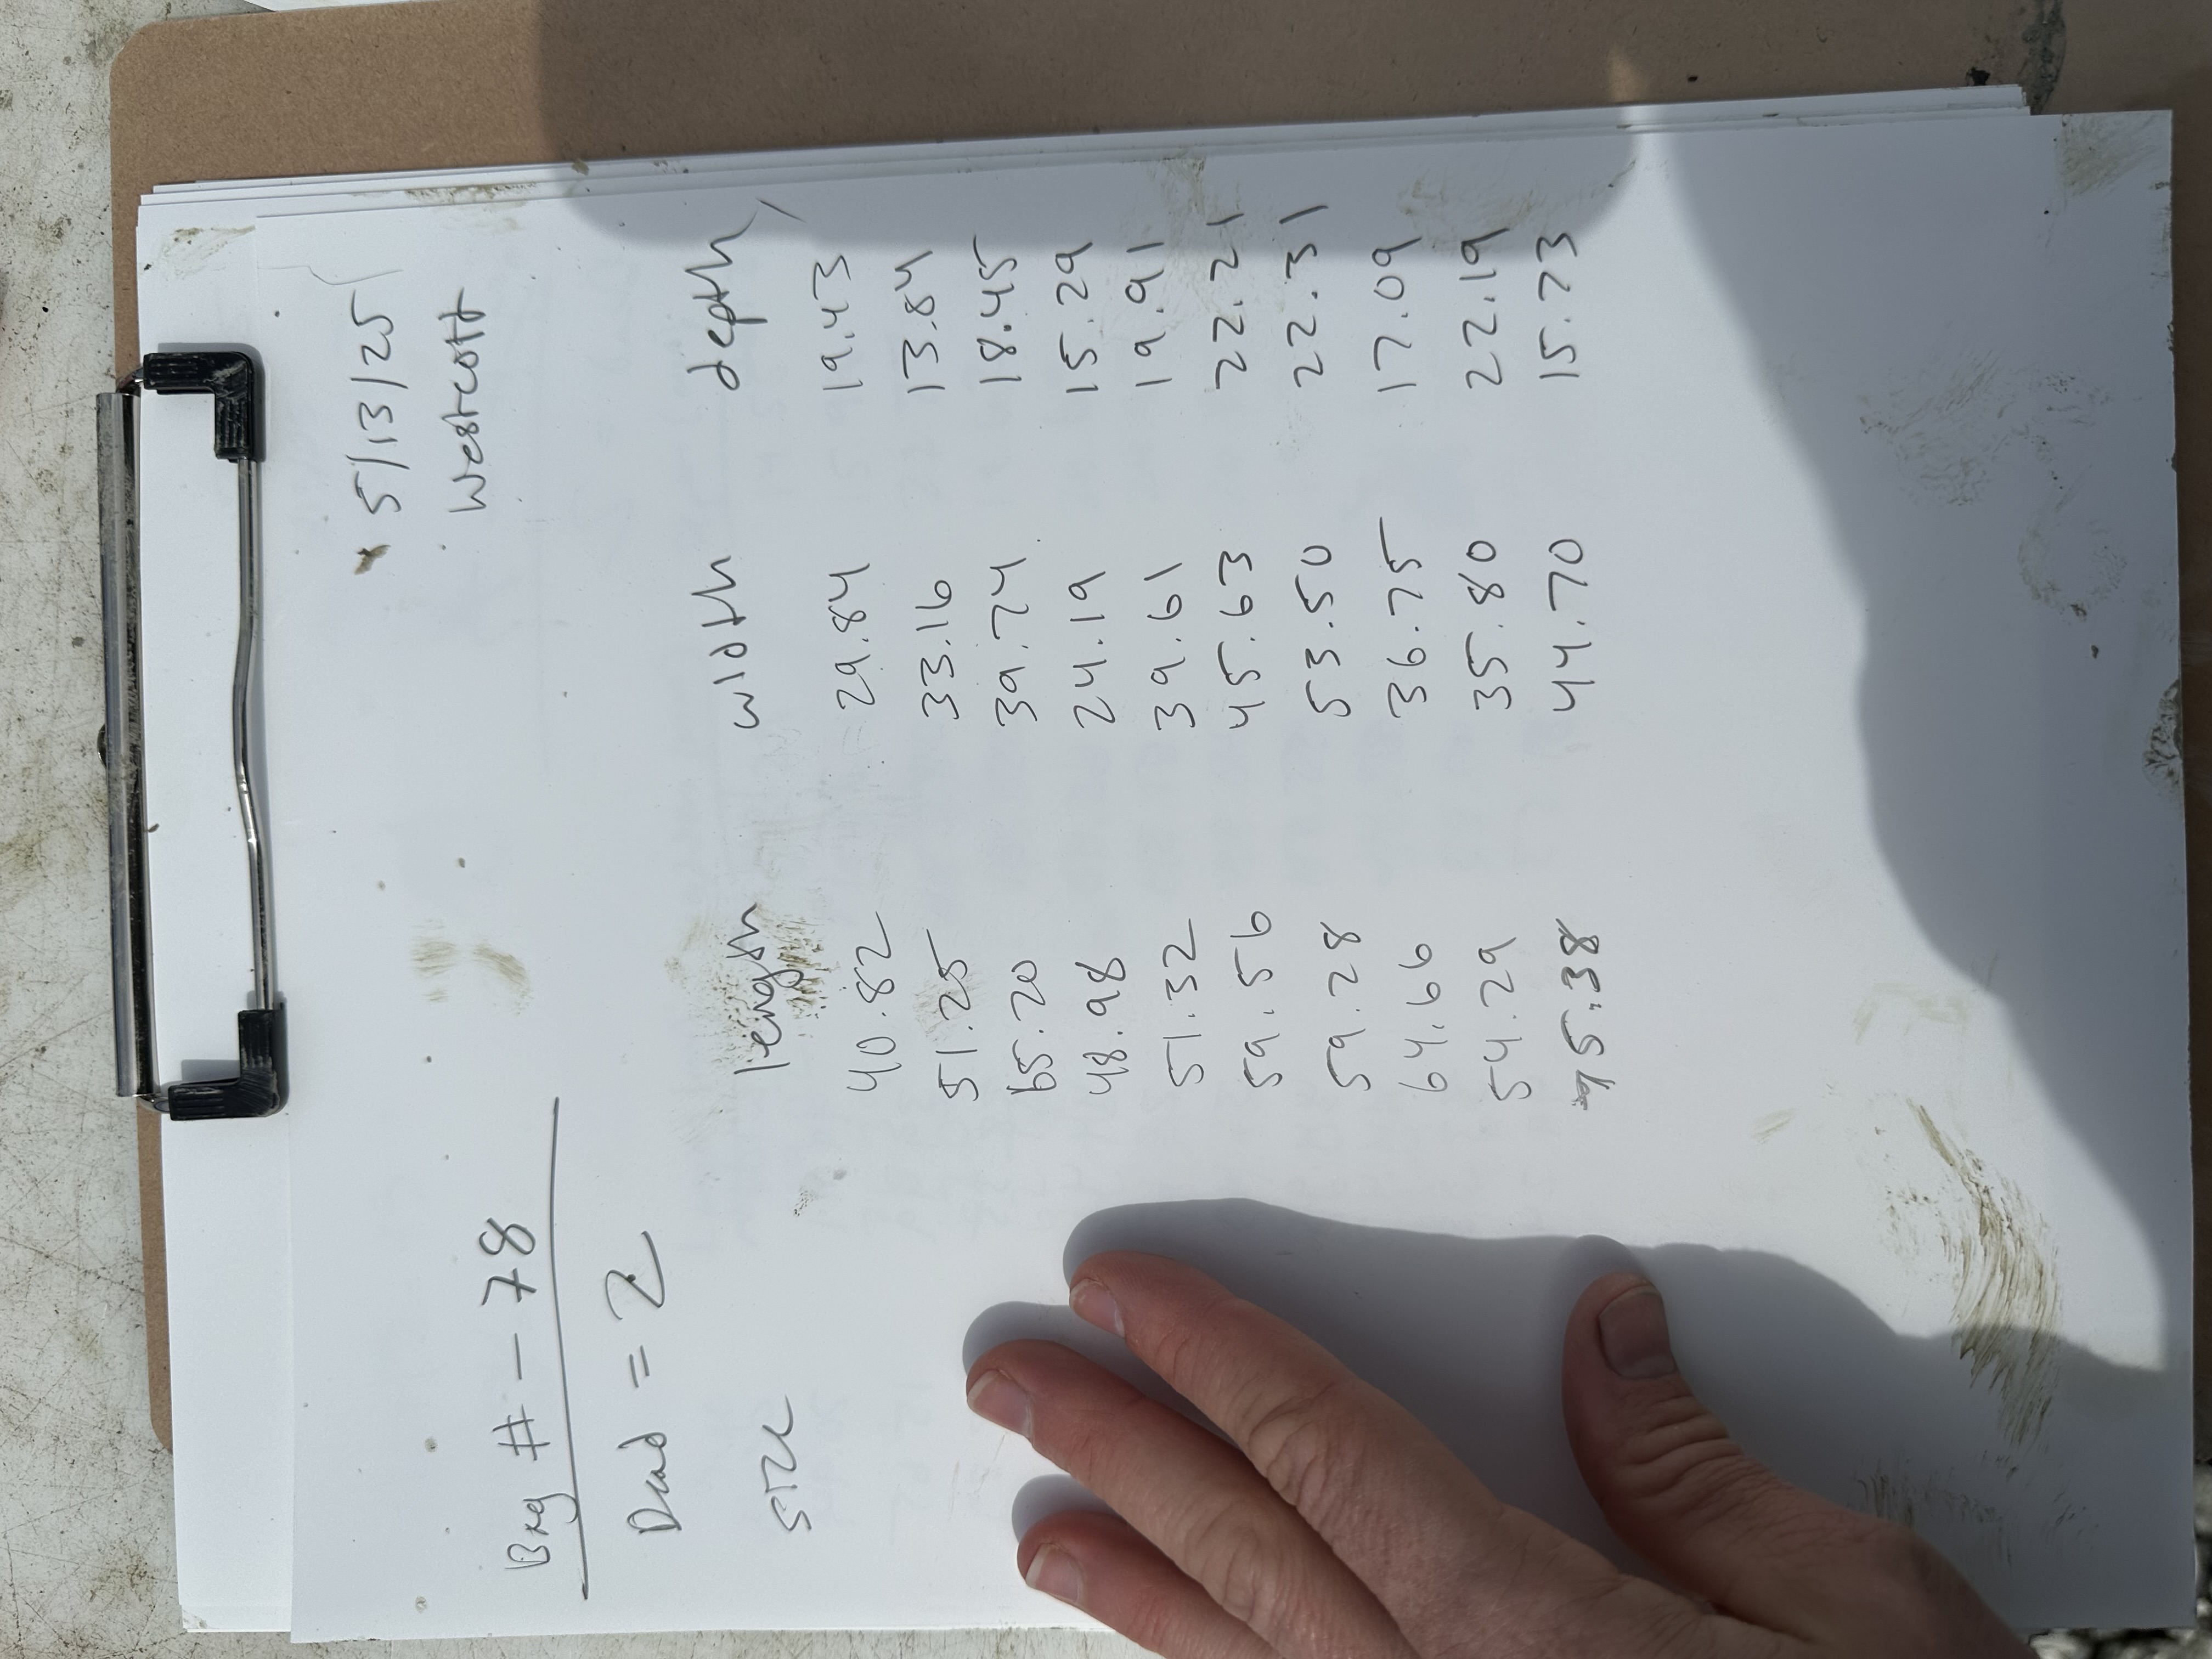 5/13/25
Westcott
Bag # - 78
Dead = 2
size length width depth
40.82 29.84 19.43
51.25 33.16 13.84
65.20 39.74 18.45
48.98 24.19 15.29
51.32 39.61 19.91
59.56 45.63 22.21
59.28 53.50 22.31
64.66 36.75 17.09
54.29 35.80 22.19
75.38 44.70 15.73